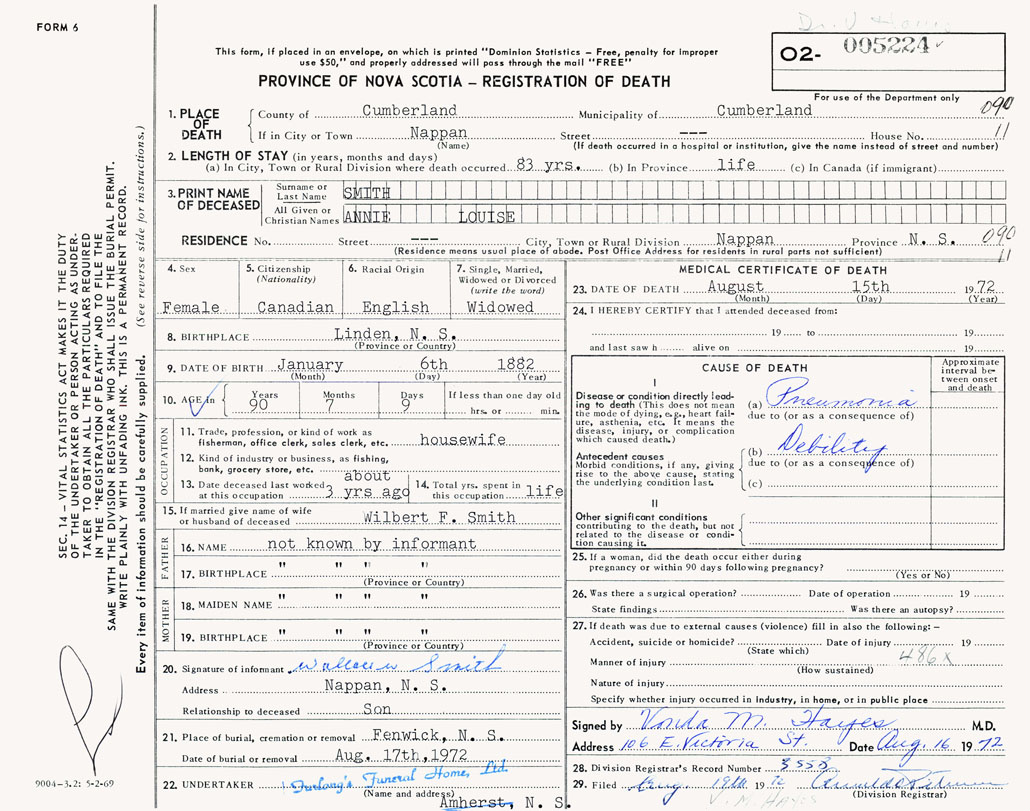 FORM 6
Dr. V Hayes
This form, if placed in an envelope, on which is printed "Dominion Statistics – Free, penalty for improper
use $50," and properly addressed will pass through the mail "FREE"
PROVINCE OF NOVA SCOTIA – REGISTRATION OF DEATH
02- 005224
For use of the Department only
090
11
1. PLACE OF DEATH
County of Cumberland Municipality of Cumberland
If in City or Town Nappan Street --- House No.
(Name) (If death occurred in a hospital or institution, give the name instead of street and number)
2. LENGTH OF STAY (in years, months and days)
(a) In City, Town or Rural Division where death occurred 83 yrs. (b) In Province life (c) In Canada (if immigrant)
3. PRINT NAME OF DECEASED
Surname or Last Name SMITH
All Given or Christian Names ANNIE LOUISE
RESIDENCE No. Street --- City, Town or Rural Division Nappan Province N. S. 090
(Residence means usual place of abode. Post Office Address for residents in rural parts not sufficient) 11
4. Sex
Female
5. Citizenship
(Nationality)
Canadian
6. Racial Origin
English
7. Single, Married,
Widowed or Divorced
(write the word)
Widowed
8. BIRTHPLACE Linden, N. S.
(Province or Country)
9. DATE OF BIRTH January 6th 1882
(Month) (Day) (Year)
10. AGE in Years 90 Months 7 Days 9 If less than one day old
hrs. or min.
OCCUPATION
11. Trade, profession or kind of work as
fisherman, office clerk, sales clerk, etc. housewife
12. Kind of industry or business, as fishing,
bank, grocery store, etc.
13. Date deceased last worked
at this occupation about 3 yrs ago
14. Total yrs. spent in
this occupation life
15. If married give name of wife
or husband of deceased Wilbert F. Smith
FATHER
16. NAME not known by informant
17. BIRTHPLACE " " " "
(Province or Country)
MOTHER
18. MAIDEN NAME " " " "
19. BIRTHPLACE " " " "
(Province or Country)
20. Signature of informant Wallace W Smith
Address Nappan, N. S.
Relationship to deceased Son
21. Place of burial, cremation or removal Fenwick, N. S.
Date of burial or removal Aug. 17th, 1972
22. UNDERTAKER Furlong's Funeral Home, Ltd.
(Name and address) Amherst, N. S.
MEDICAL CERTIFICATE OF DEATH
23. DATE OF DEATH August 15th 1972
(Month) (Day) (Year)
24. I HEREBY CERTIFY that I attended deceased from:
19 to 19
and last saw h alive on 19
CAUSE OF DEATH
Approximate interval between onset and death
I
Disease or condition directly lead-
ing to death (This does not mean
the mode of dying, e.g., heart fail-
ure, asthenia, etc. It means the
disease, injury, or complication
which caused death.)
(a) Pneumonia
due to (or as a consequence of)
Antecedent causes
Morbid conditions, if any, giving
rise to the above cause, stating
the underlying condition last.
(b) Debility
due to (or as a consequence of)
(c)
II
Other significant conditions
contributing to the death, but not
related to the disease or condi-
tion causing it.
25. If a woman, did the death occur either during
pregnancy or within 90 days following pregnancy?
(Yes or No)
26. Was there a surgical operation? Date of operation 19
State findings Was there an autopsy?
27. If death was due to external causes (violence) fill in also the following: –
Accident, suicide or homicide? Date of injury 19
(State which) 486x
Manner of injury
(How sustained)
Nature of injury
Specify whether injury occurred in Industry, in home, or in public place
Signed by Vonda M. Hayes M.D.
Address 106 E. Victoria St. Date Aug. 16 1972
28. Division Registrar's Record Number 3553
29. Filed Aug. 19th
(Division Registrar)
V. M. HAYES
SEC. 14 – VITAL STATISTICS ACT MAKES IT THE DUTY
OF THE UNDERTAKER OR PERSON ACTING AS UNDER-
TAKER TO OBTAIN ALL THE PARTICULARS REQUIRED
IN THE "REGISTRATION OF DEATH" AND TO FILE THE
SAME WITH THE DIVISION REGISTRAR WHO SHALL ISSUE THE BURIAL PERMIT.
WRITE PLAINLY WITH UNFADING INK. THIS IS A PERMANENT RECORD.
Every item of information should be carefully supplied. (See reverse side for instructions.)
9004-3.2: 5-2-69